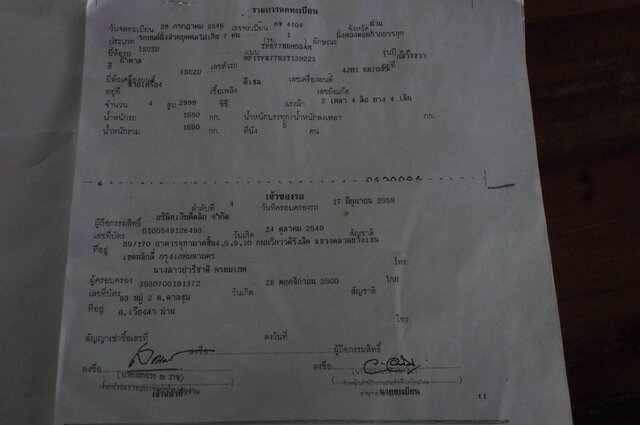 รายการจดทะเบียน
วันจดทะเบียน 28 กรกฎาคม 2546 เลขทะเบียน กข 4104 จังหวัด น่าน
ประเภท รถยนต์นั่งส่วนบุคคลไม่เกิน 7 คน (รย. 1) ลักษณะ นั่งสองตอนท้ายบรรทุก
ยี่ห้อรถ ISUZU แบบ TFR77HDM5DAM รุ่นปี
สี น้ำตาล เลขตัวรถ MP1TFR77H3T139223 อยู่ที่
ยี่ห้อเครื่องยนต์ ISUZU เลขเครื่องยนต์ 4JH1
อยู่ที่ เชื้อเพลิง ดีเซล เลขถังแก๊ส
จำนวน 4 สูบ 2999 ซีซี แรงม้า 2 เพลา 4 ล้อ ยาง 4 เส้น
น้ำหนักรถ 1650 กก. น้ำหนักบรรทุก/น้ำหนักลงเพลา กก.
น้ำหนักรวม 1650 กก. ที่นั่ง 5 คน
เจ้าของรถ
ลำดับที่ 4 วันที่ครอบครองรถ 17 มิถุนายน 2559
ผู้ถือกรรมสิทธิ์ บริษัทเงินติดล้อ จำกัด
เลขที่บัตร 0105549126493 วันเกิด 24 ตุลาคม 2549 สัญชาติ
ที่อยู่ 89/170 อาคารจุฑามาศชั้น4,5,9,10 ถนนวิภาวดีรังสิต แขวงตลาดบางเขน
เขตหลักสี่ กรุงเทพมหานคร โทร.
ผู้ครอบครอง
เลขที่บัตร 3550700191372 วันเกิด 28 พฤศจิกายน 2500 สัญชาติ ไทย
ที่อยู่ 93 หมู่ 2 ต.ตาลชุม
อ.เวียงสา น่าน โทร.
สัญญาเช่าซื้อเลขที่ ลงวันที่
ลงชื่อ ผู้ถือกรรมสิทธิ์
ลงชื่อ ลงชื่อ
เจ้าหน้าที่ นายทะเบียน
11